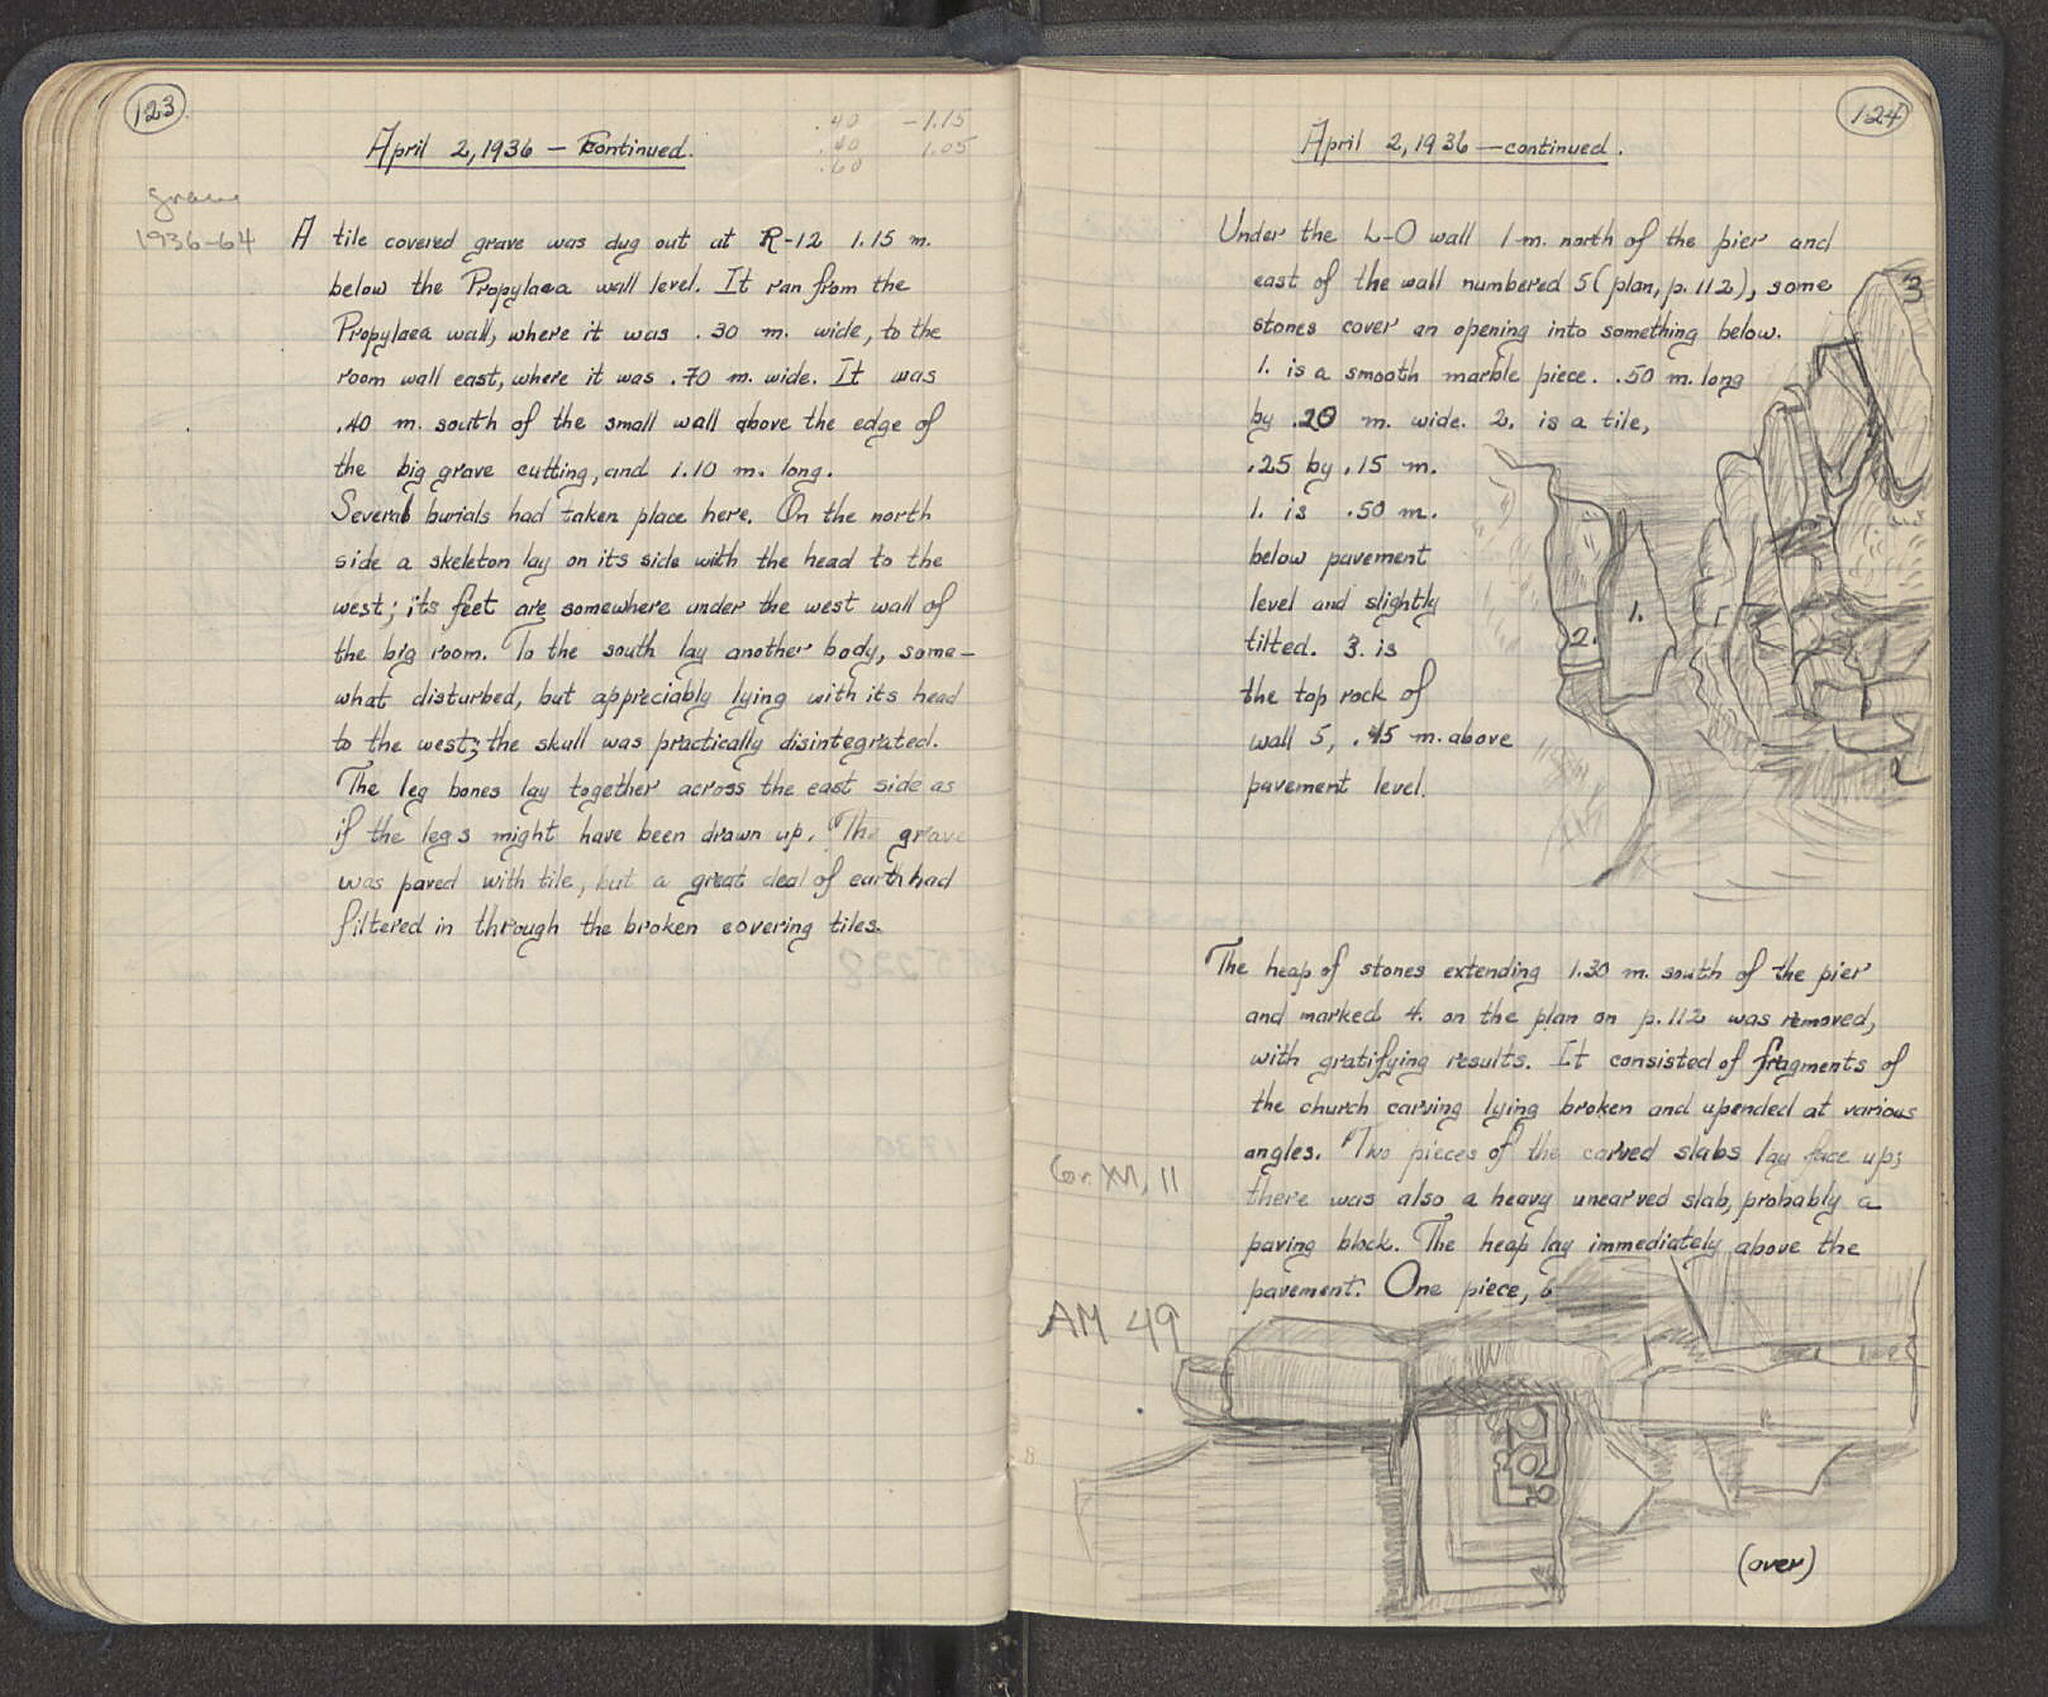 123
April 2, 1936 — Continued.
.40 -1.15
.40 1.05
.60
grave
1936-64
A tile covered grave was dug out at R-12 1.15 m.
below the Propylaea wall level. It ran from the
Propylaea wall, where it was .30 m. wide, to the
room wall east, where it was .70 m. wide. It was
.40 m. south of the small wall above the edge of
the big grave cutting, and 1.10 m. long.
Several burials had taken place here. On the north
side a skeleton lay on its side with the head to the
west; its feet are somewhere under the west wall of
the big room. To the south lay another body, some-
what disturbed, but appreciably lying with its head
to the west; the skull was practically disintegrated.
The leg bones lay together across the east side as
if the legs might have been drawn up. The grave
was paved with tile, but a great deal of earth had
filtered in through the broken covering tiles.
124
April 2, 1936 — continued.
Under the L-O wall 1 m. north of the pier and
east of the wall numbered 5 (plan, p. 112), some
stones cover an opening into something below.
1. is a smooth marble piece. .50 m. long
by .20 m. wide. 2. is a tile,
.25 by .15 m.
1. is .50 m.
below pavement
level and slightly
tilted. 3. is
the top rock of
wall 5, .45 m. above
pavement level.
3
1.
2.
The heap of stones extending 1.30 m. south of the pier
and marked 4. on the plan on p. 112 was removed,
with gratifying results. It consisted of fragments of
the church carving lying broken and upended at various
angles. Two pieces of the carved slabs lay face up;
there was also a heavy uncarved slab, probably a
paving block. The heap lay immediately above the
pavement. One piece, 6
Cor. XVI, 11
AM 49
(over)